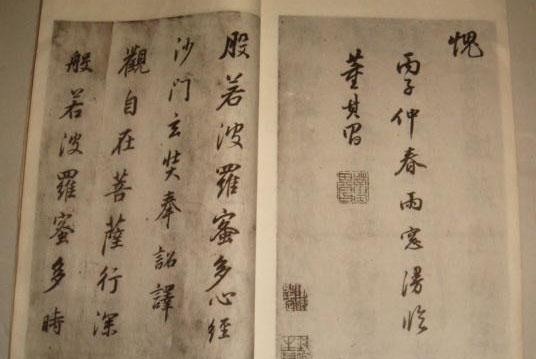 愧
丙子仲春雨窓漫臨
董其昌
般若波羅蜜多心經
沙門玄奘奉詔譯
觀自在菩薩行深
般若波羅蜜多時